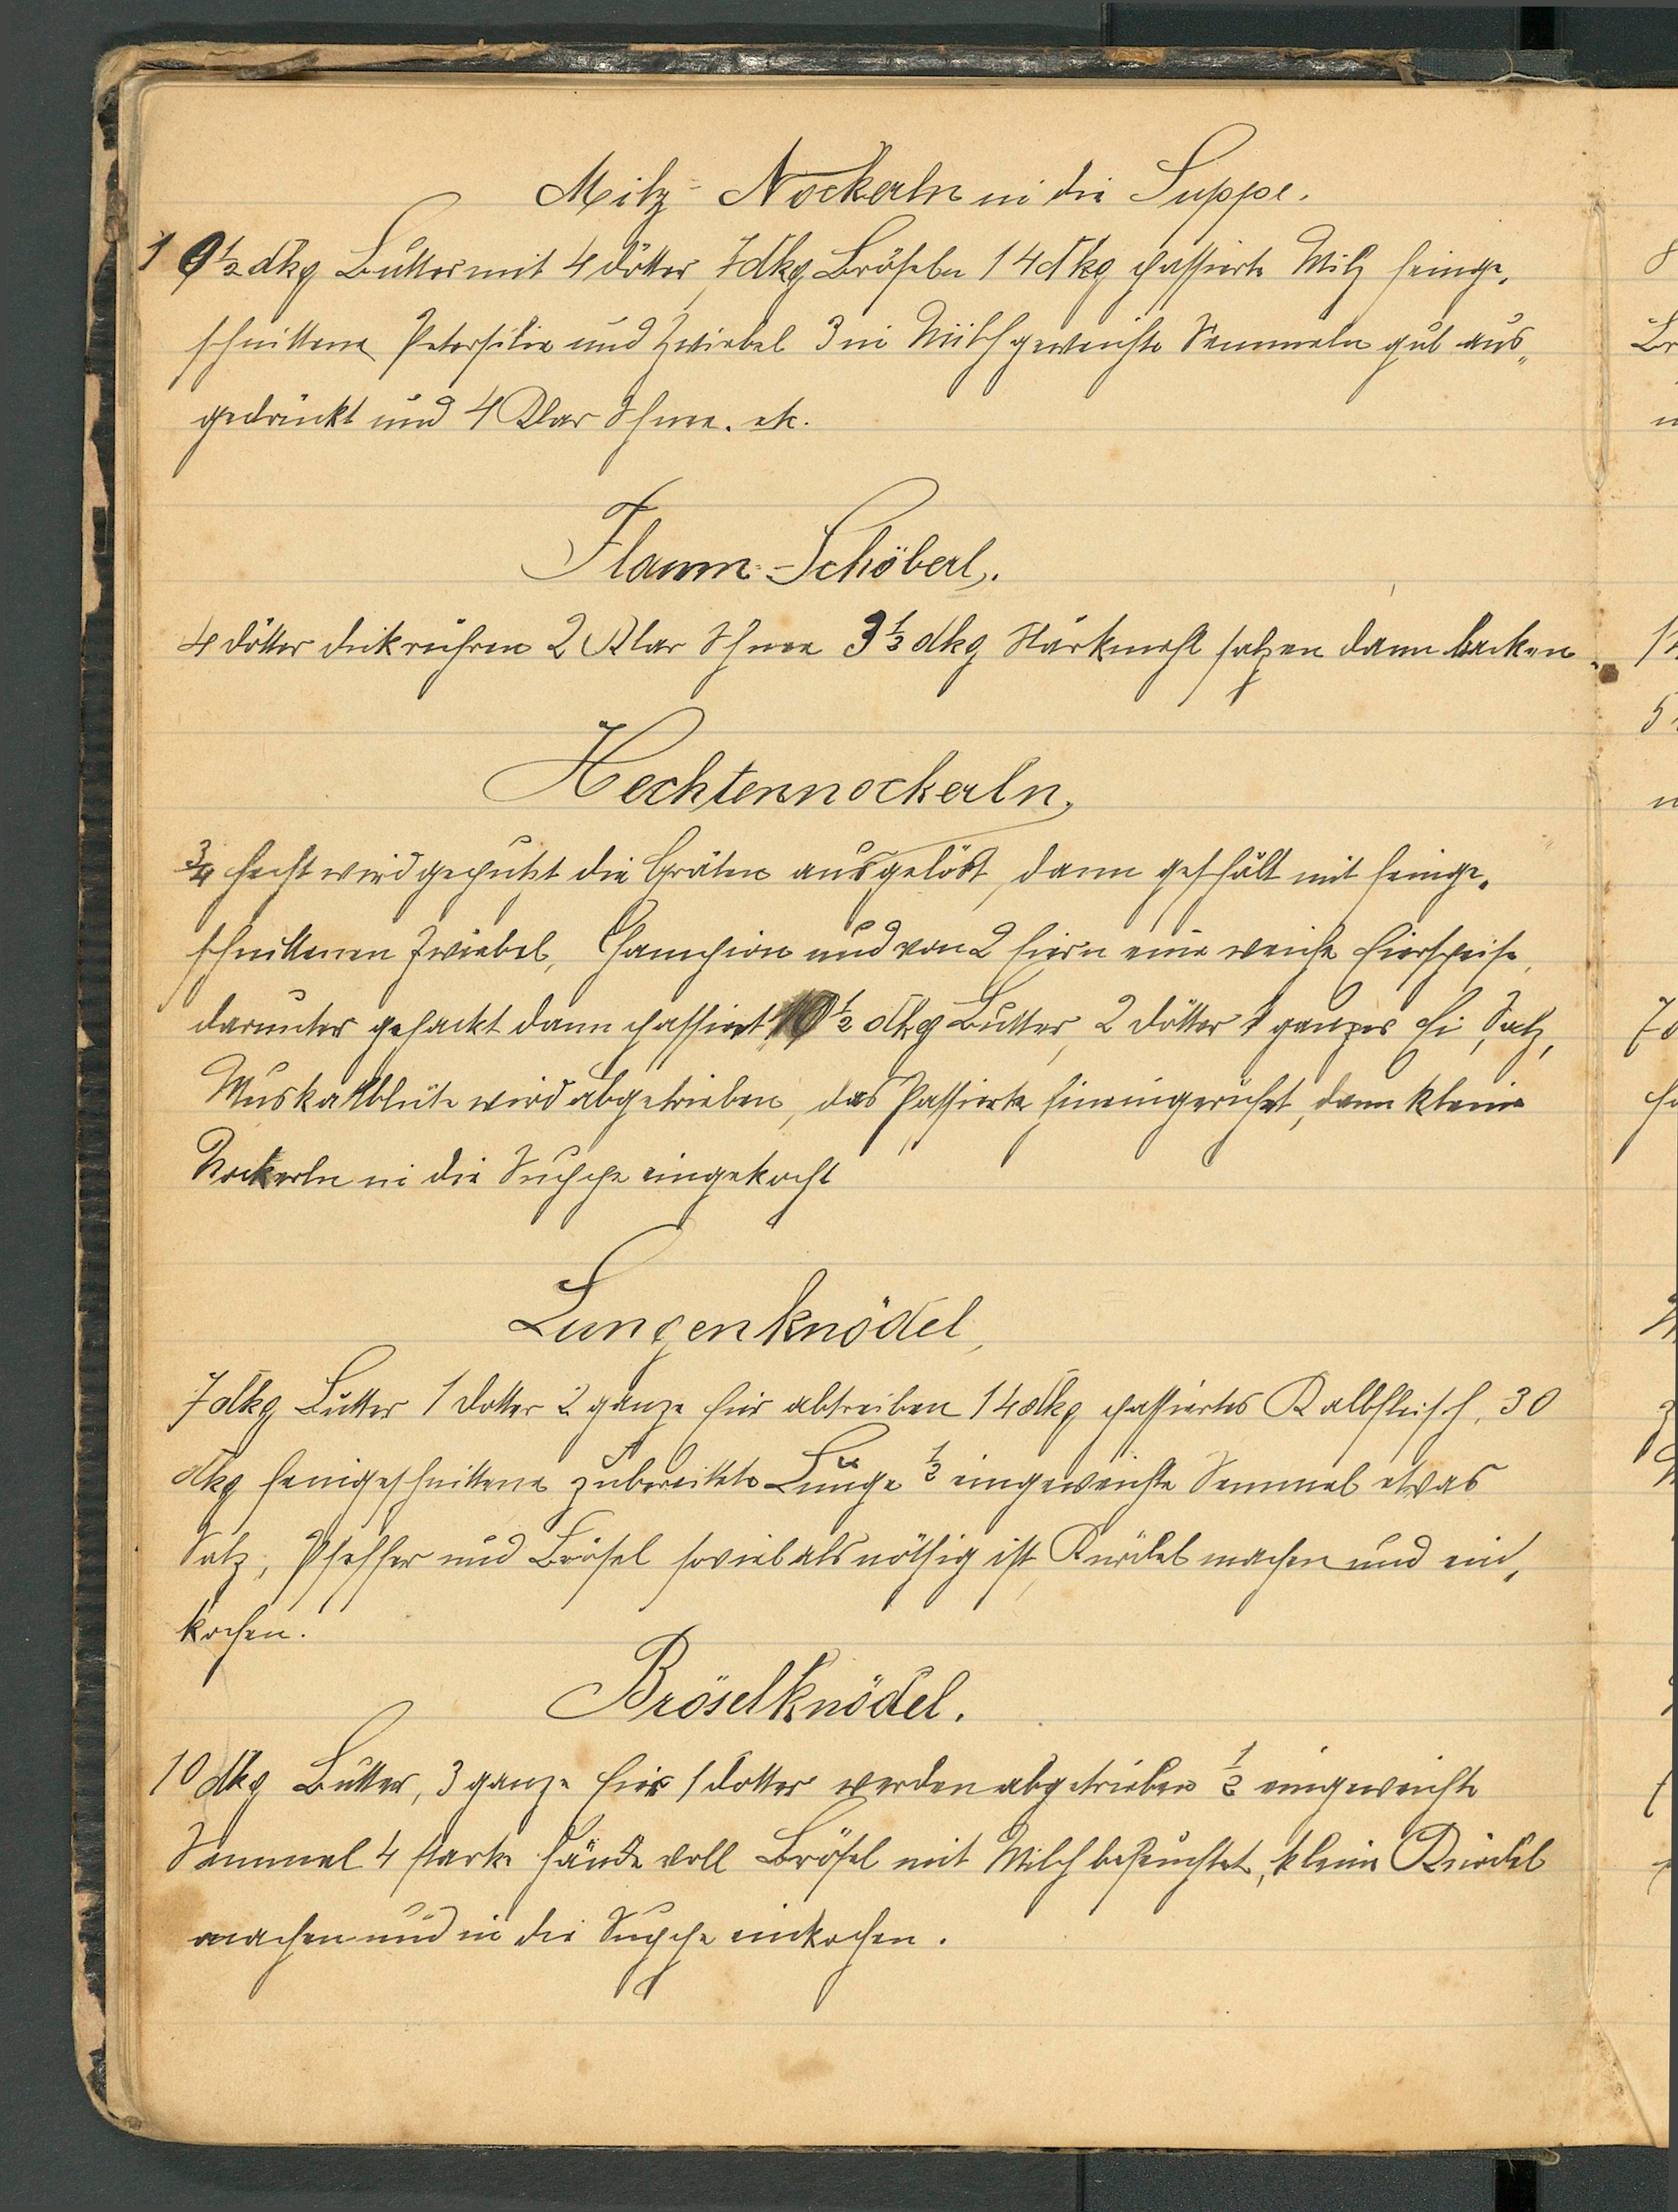 Milz-Nockerln in die Suppe.
10½ dkg Butter mit 4 Dötter, 7 dkg Bröseln 14 dkg passierte Milz feinge„
schnittene Petersilie und Zwiebel 3 in Milch geweichte Semmeln gut aus„
gedrückt und 4 Klar Schnee. etc.
Flaum-Schöberl.
4 Dötter dick rühren 2 Klar Schnee 3½ dkg Stärkmehl salzen dann backen.
Hechtennockerln,
¾ Hecht wird geputzt die Gräten ausgelöst, dann geschält mit feinge„
schnittenen Zwiebel, Champion und von 2 Eiern eine weiche Eierspeise,
darunter gehackt dann passiert 10½ dkg Butter, 2 Dötter 1 ganzes Ei, Salz,
Muskatblüte wird abgetrieben, das Passierte hineingerührt, dann kleine
Nockerln in die Suppe eingekocht
Lungenknödel,
7 dkg Butter 1 Dotter 2 ganze Eier abtreiben 14 dkg passiertes Kalbfleisch, 30
dkg feingeschnittene zubereitete Lunge ½ eingeweichte Semmel etwas
Salz, Pfeffer und Brösel soviel als nöthig ist, Knödel machen und ein„
kochen.
Bröselknödel.
10 dkg Butter, 3 ganze Eier 1 Dotter werden abgetrieben ½ eingeweichte
Semmel 4 starke Hände voll Brösel mit Milch befeuchtet, kleine Knödel
machen und in die Suppe einkochen.